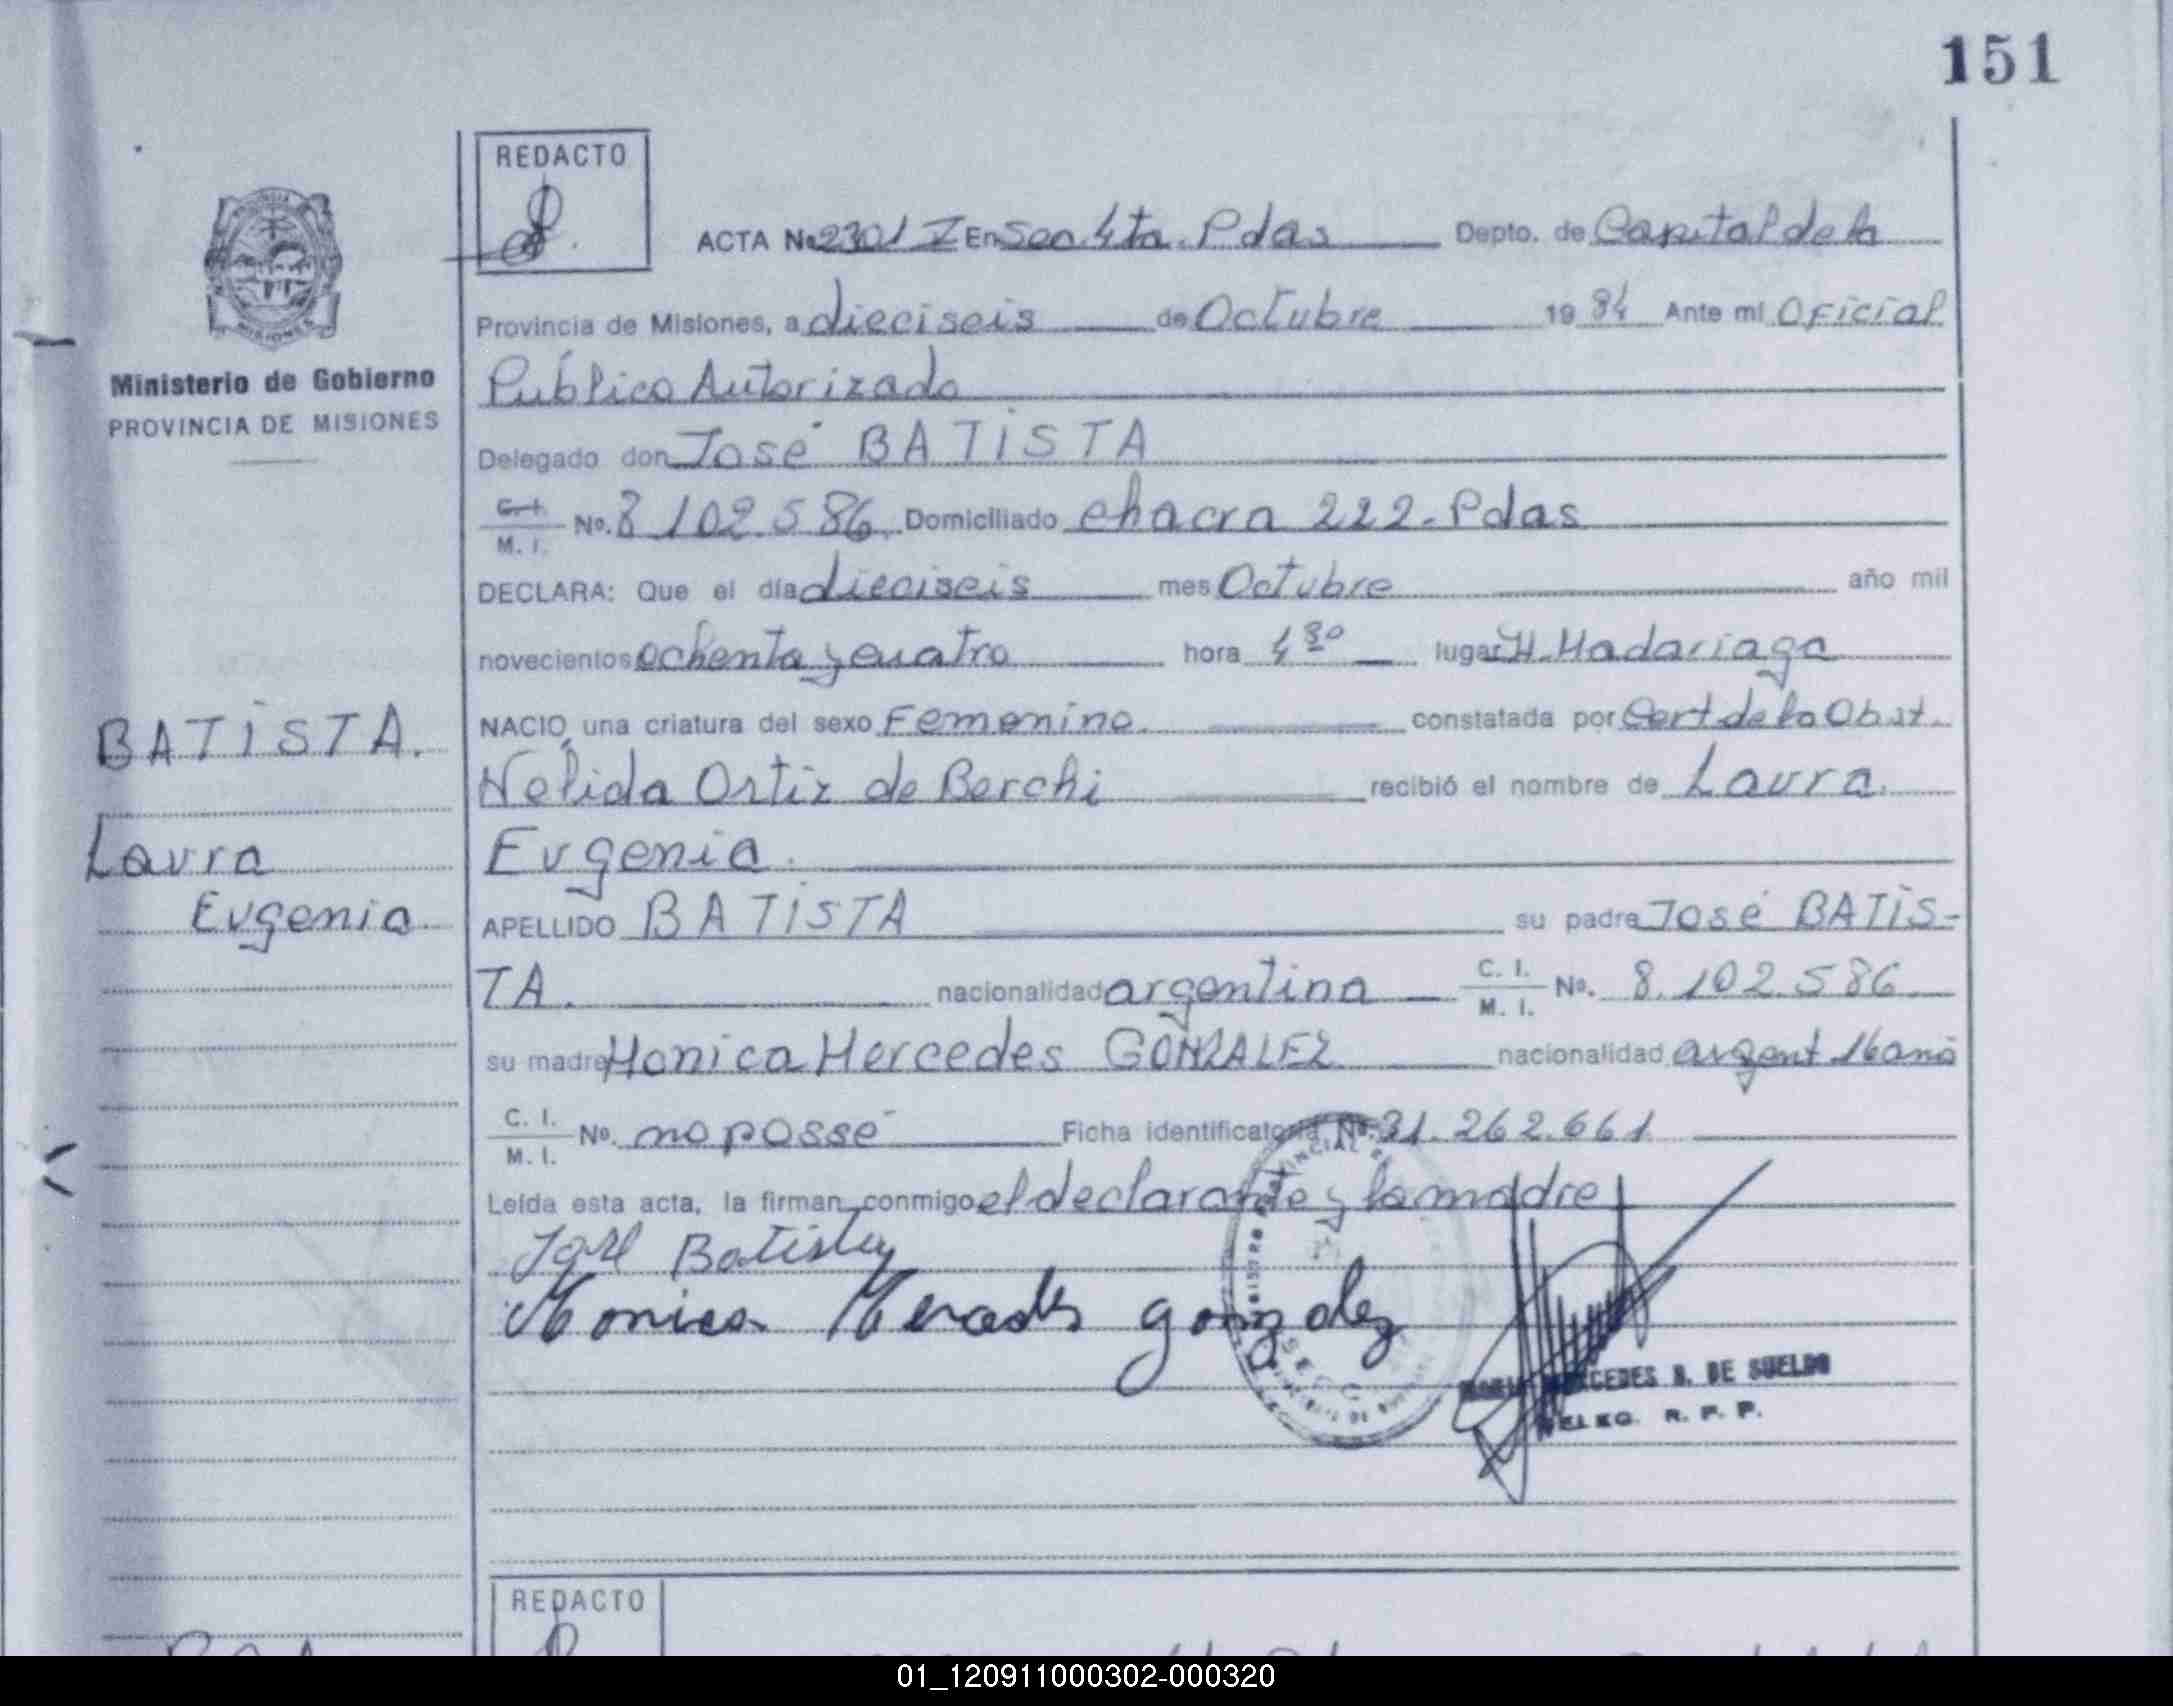 151
REDACTO
ACTA No 2301 I En Sec. 4ta. Pdas Depto. de Capital de la
Provincia de Misiones, a dieciseis de Octubre 19 84 Ante mi Oficial
Público Autorizado
Ministerio de Gobierno
PROVINCIA DE MISIONES
Delegado don José BATISTA
C. I. / M. I. No. 8 102.586. Domiciliado chacra 222. Pdas
DECLARA: Que el día dieciseis mes Octubre año mil
novecientos ochenta y cuatro hora 4 30 lugar H. Madariaga
NACIO una criatura del sexo Femenino. constatada por Cert de la Obst.
Nelida Ortiz de Berchi recibió el nombre de Laura
Eugenia.
BATISTA.
Laura
Eugenia
APELLIDO BATISTA su padre José BATIS-
TA. nacionalidad argentina C. I. / M. I. No. 8.102.586
su madre Monica Mercedes GONZALEZ nacionalidad argent 16 anõ
C. I. / M. I. No. no posse Ficha identificatoria No. 31.262.661
Leída esta acta, la firman conmigo el declarante y la madre
José Batista
Monica Mercedes gonzalez
MERCEDES B. DE SUELDO
DELEG. R. P. P.
REDACTO
01_120911000302-000320